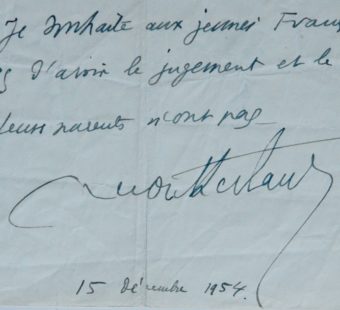 Je souhaite aux jeunes Fran
d'avoir le jugement et le
leurs parents n'ont pas
Montherlant
15 décembre 1954.